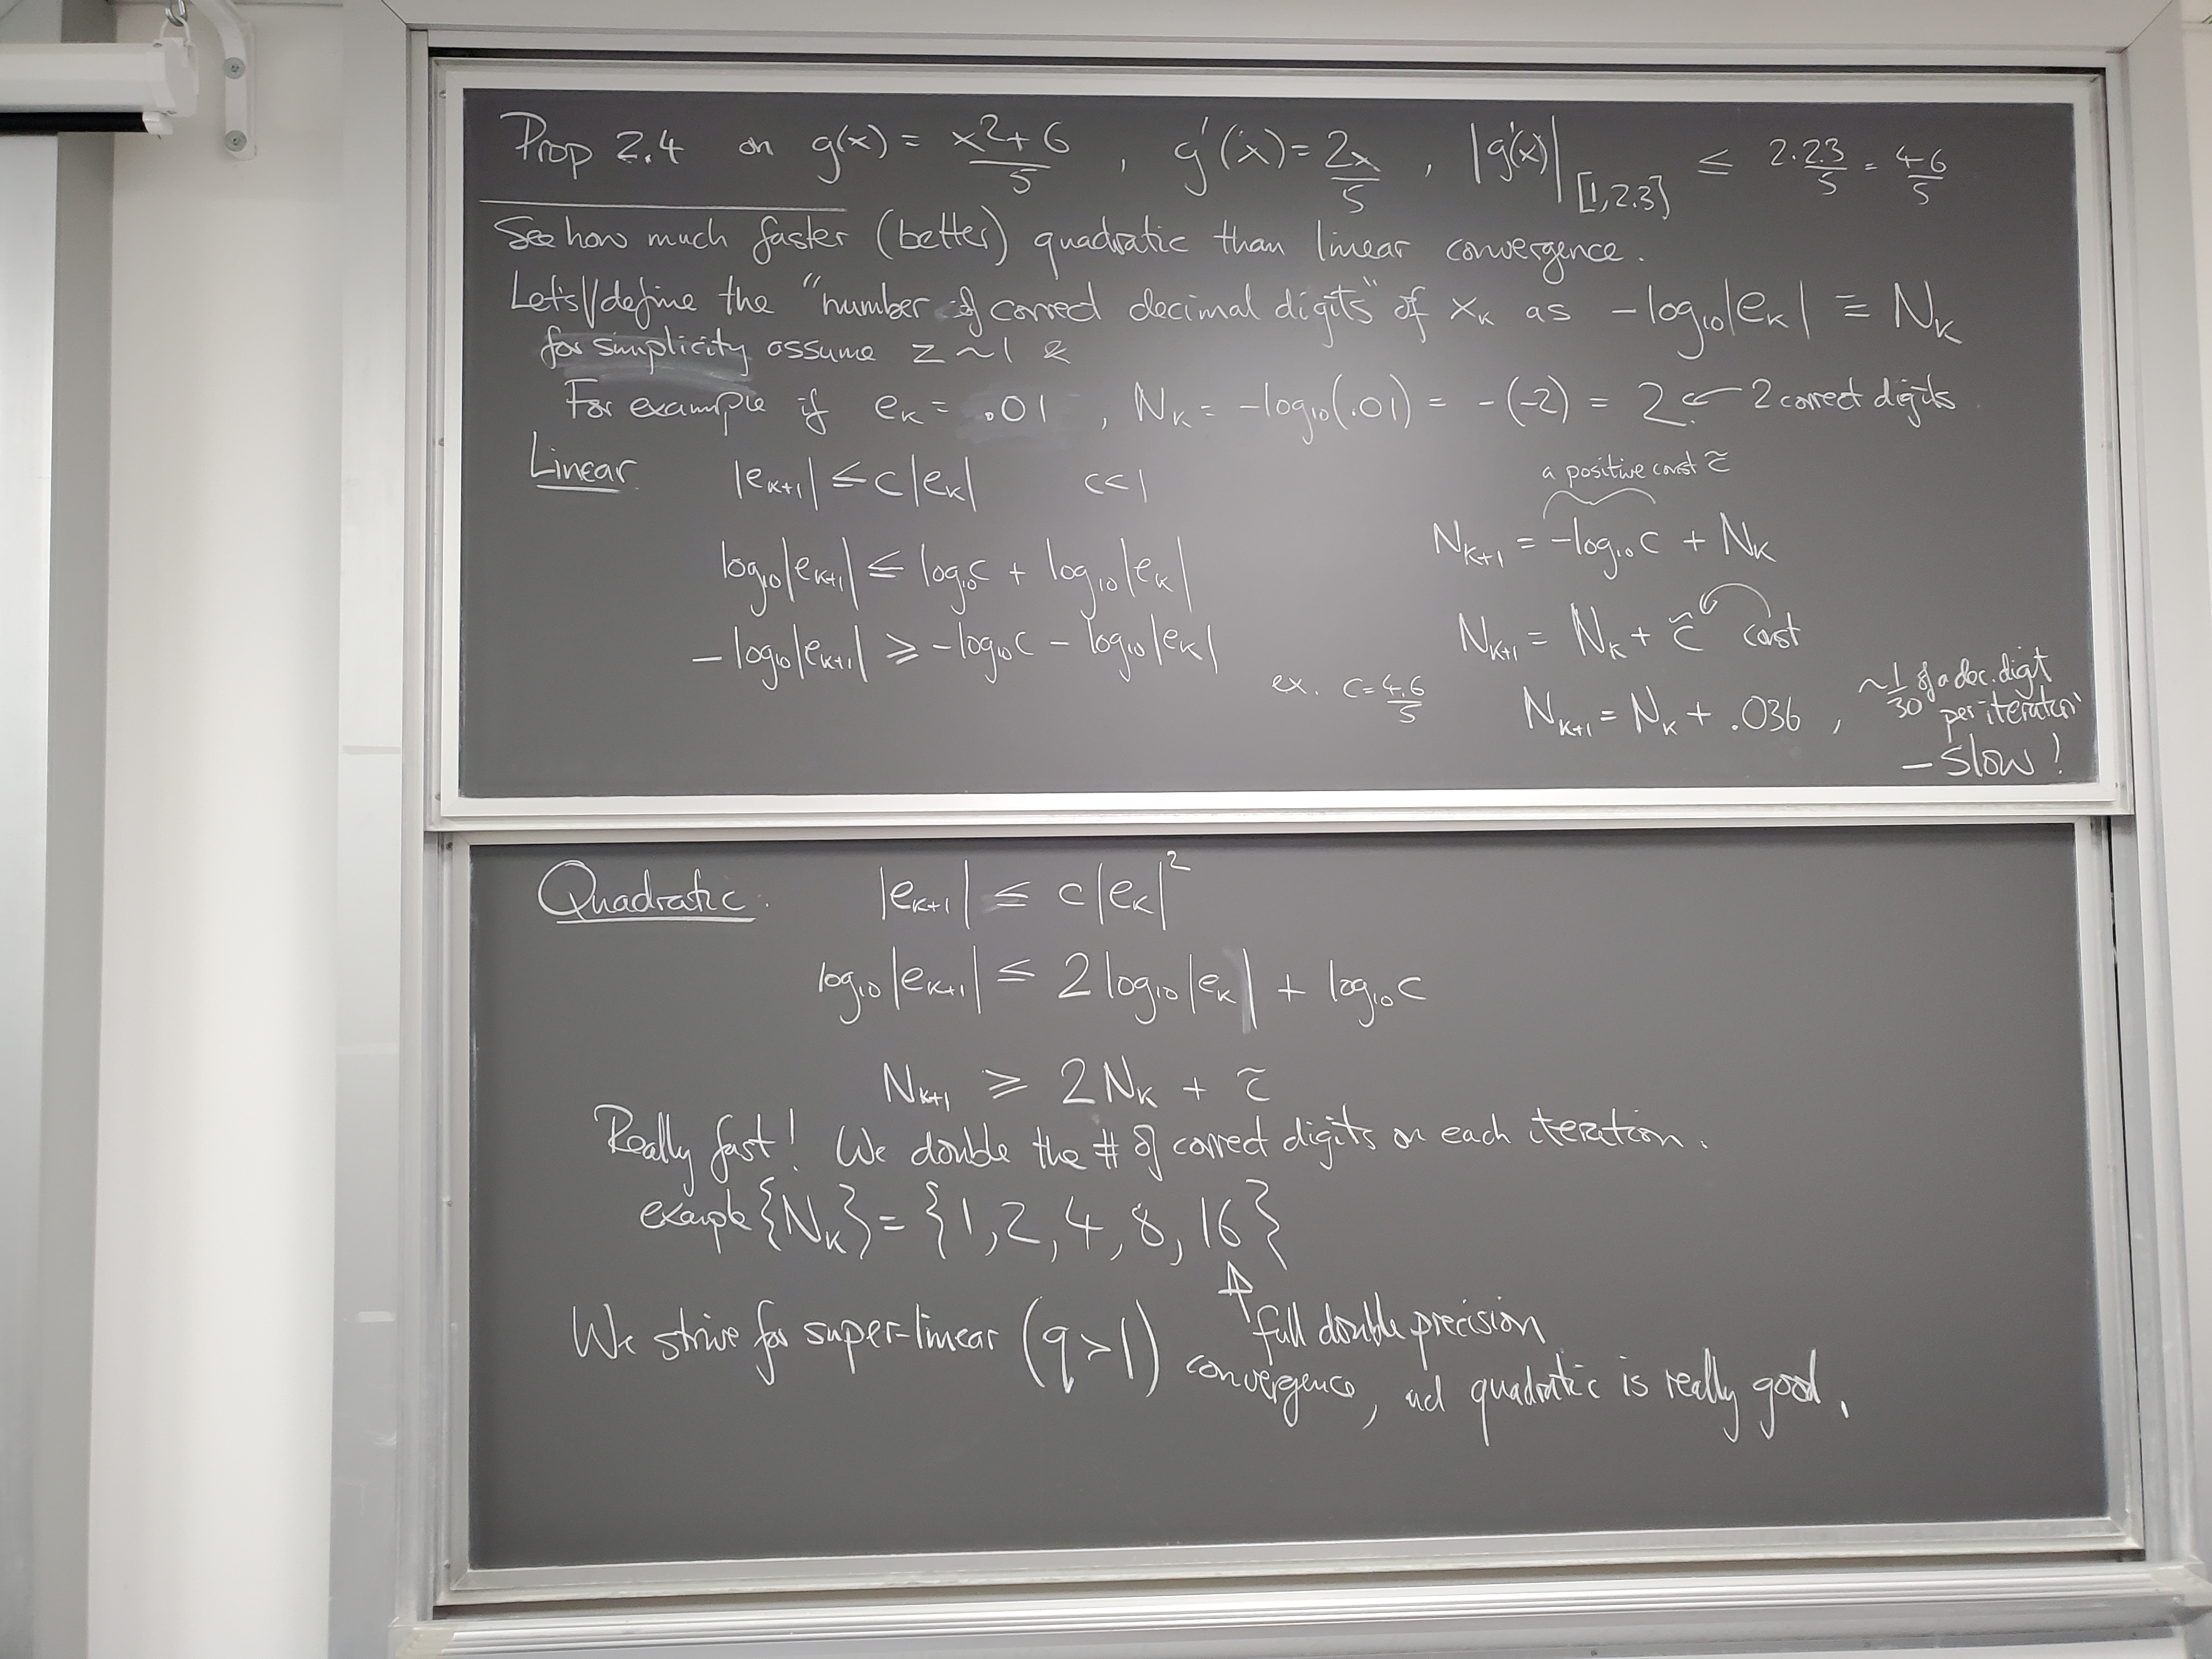 Prop 2.4 on g(x) = x²+6/5 , g'(x) = 2x/5 , |g'(x)|[1,2.3] ≤ 2·2.3/5 = 4.6/5
See how much faster (better) quadratic than linear convergence.
Let's // define the "number of correct decimal digits" of xₖ as -log₁₀|eₖ| ≡ Nₖ
for simplicity assume z ~ 1 &
For example if eₖ = .01 , Nₖ = -log₁₀(.01) = -(-2) = 2. ← 2 correct digits
Linear |eₖ₊₁| ≤ c|eₖ| c<1
a positive const c̃
Nₖ₊₁ = -log₁₀c + Nₖ
log₁₀|eₖ₊₁| ≤ log₁₀c + log₁₀|eₖ|
Nₖ₊₁ = Nₖ + c̃ const
-log₁₀|eₖ₊₁| ≥ -log₁₀c - log₁₀|eₖ|
ex. c = 4.6/5 Nₖ₊₁ = Nₖ + .036 , ~1/30 of a dec. digit
per iteration
- slow!
Quadratic: |eₖ₊₁| ≤ c|eₖ|²
log₁₀|eₖ₊₁| ≤ 2 log₁₀|eₖ| + log₁₀c
Nₖ₊₁ ≥ 2Nₖ + c̃
Really fast! We double the # of correct digits on each iteration.
example {Nₖ} = {1, 2, 4, 8, 16}
↑ full double precision
We strive for super-linear (q>1) convergence, and quadratic is really good.